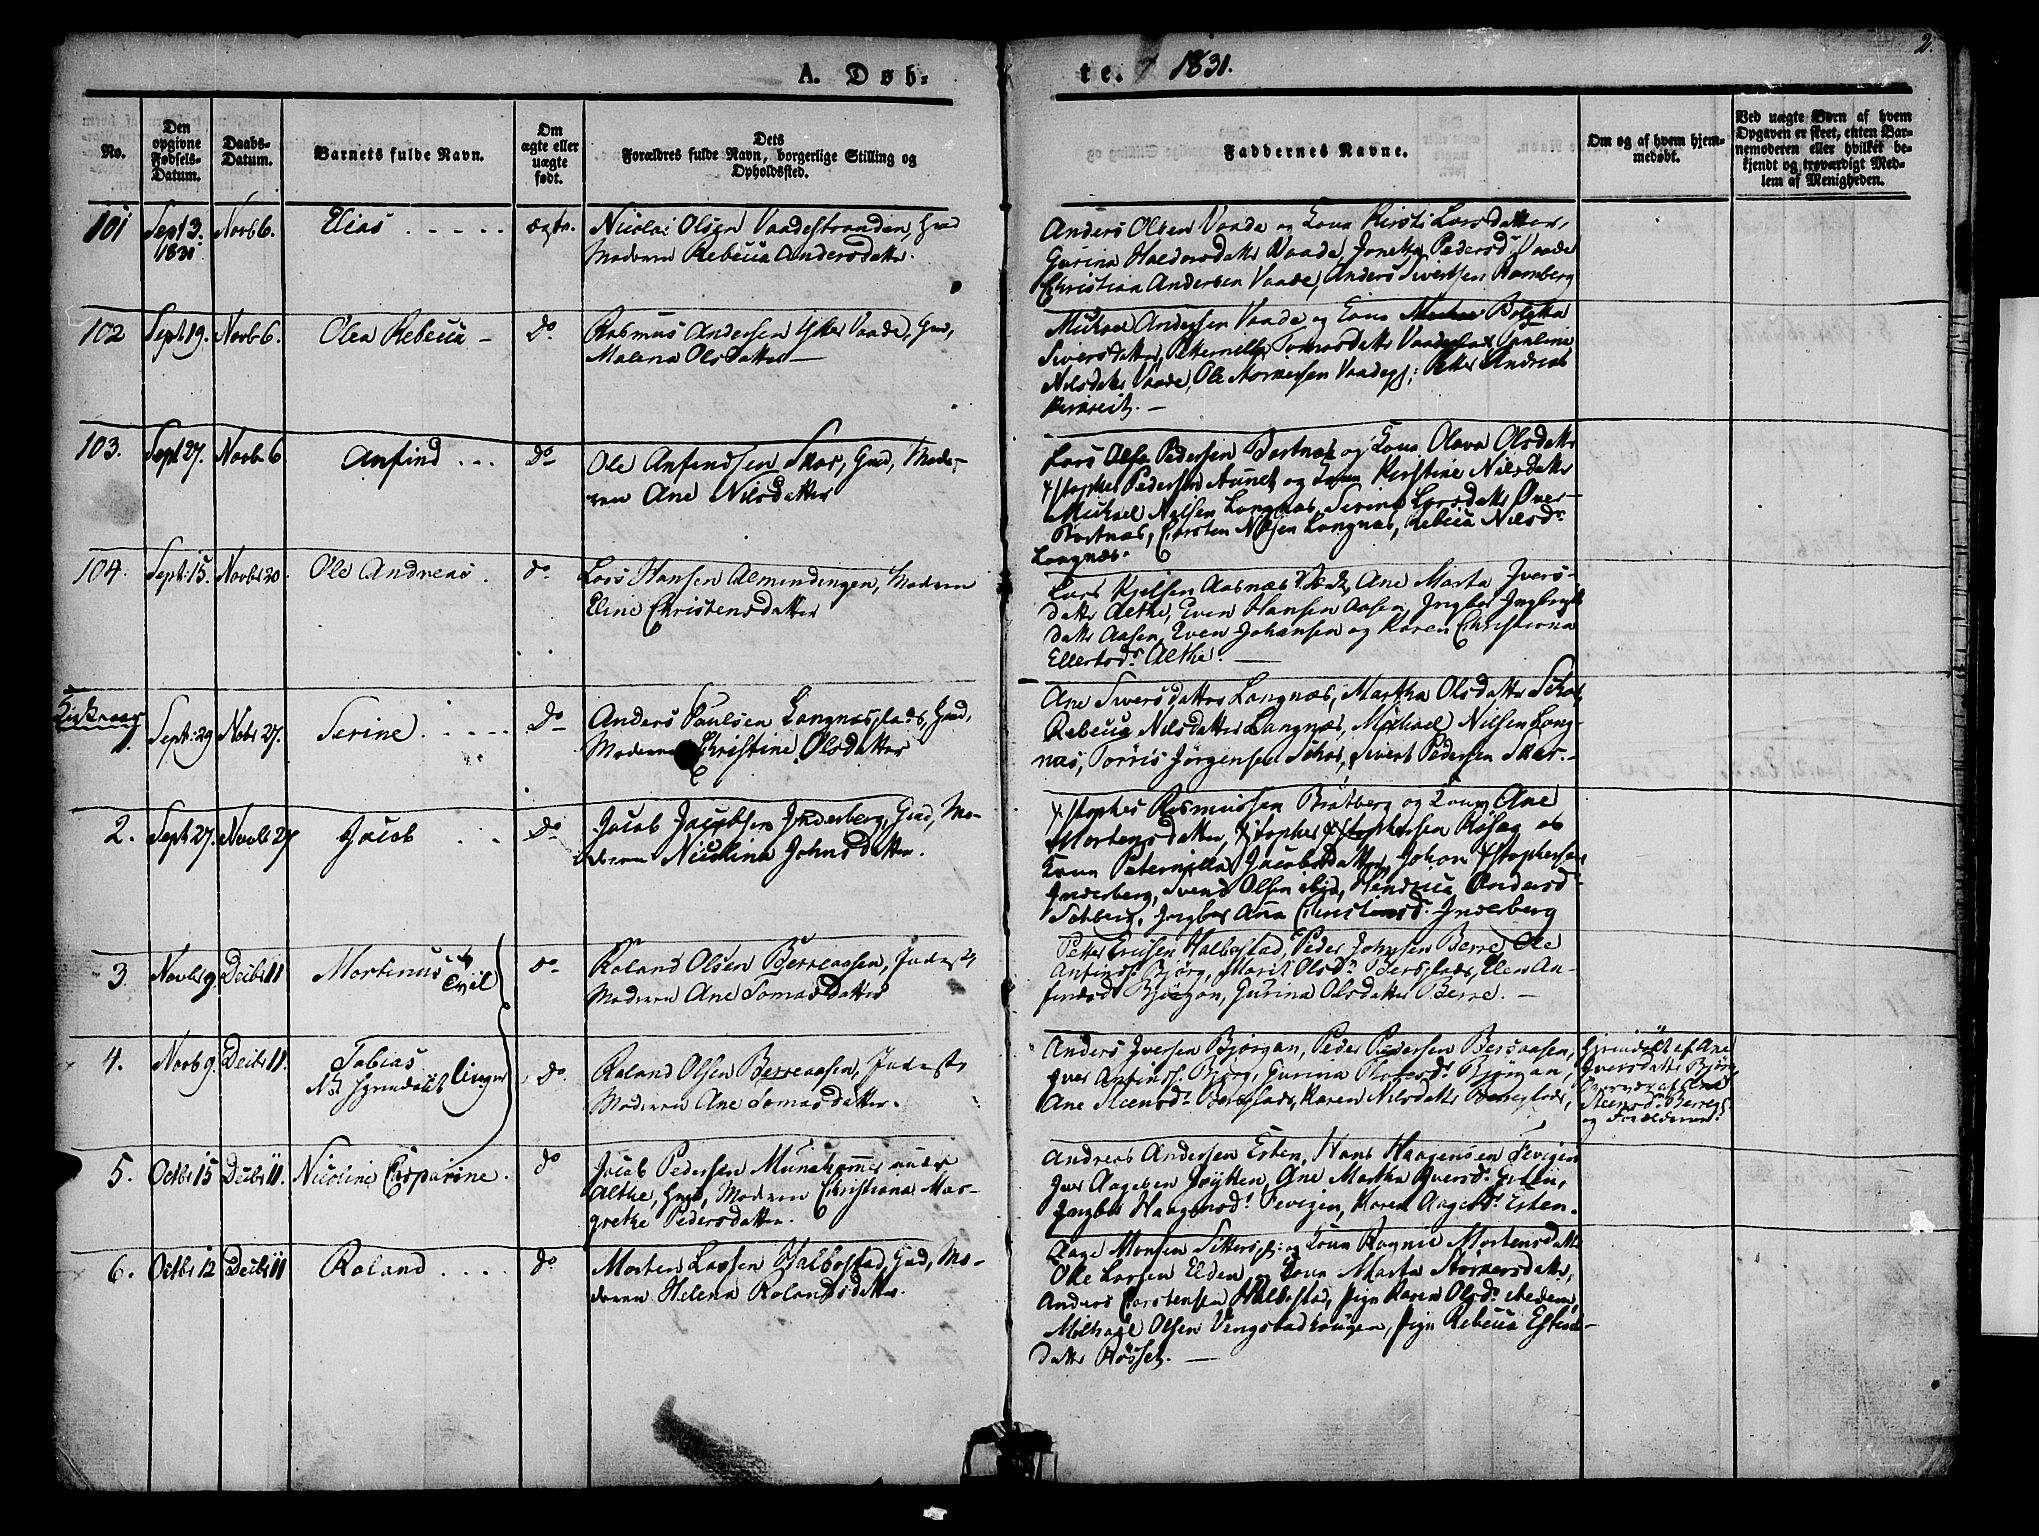 2.
A. Døb-
te. 1831.
No.
Den opgivne Fødsels-Datum.
Daabs-Datum.
Barnets fulde Navn.
Om ægte eller uægte født.
Dets Forældres fulde Navn, borgerlige Stilling og Opholdssted.
Faddernes Navne.
Om og af hvem hjem-medøbt.
Ved uægte Børn af hvem Opgaven er skeet, enten Bar-nemoderen eller hvilket be-kjendt og troværdigt Med-lem af Menigheden.
101 Sept 3. 1831 Novb 6. Elias ægte.
Nicolai Olsen Vaadestranden, Gmd
Moderen Rebecca Andersdatter.
Anders Olsen Vaade og Kona Kirsti Larsdatter,
Gurina Haldorsdatter Vaade, Jonetta Pedersd. Vaade
Christian Andersen Vaade, Anders Sivertsen Hamberg
102 Sept 19. Novb 6. Olea Rebecca do
Rasmus Andersen Ytter Vaade, Gmd,
Malena Olsdatter
Mikael Andersen Vaade og Kona
Siversdatter, Petternelle Tomasdatter Paulina
Nilsdatter Vaade, Ole Petter Andreas
103. Sept 27. Novb 6 Anfind do
Ole Anfindsen Skar, Gmd, Mode-
ren Ane Nilsdatter
Lars Pedersen og Kona Olava Olsdatter
Xstopher Pedersen Aunet og Kona Kirstine Nilsdatter
Mikael Nilsen Langnæs, Serina Larsdatter Over-
Carsten Nilsen Langnæs, Rebecca Nilsdr
Langnæs.
104. Sept: 15. Novbr 20. Ole Andreas do
Lars Hansen Almindingen, Moderen
Eline Christensdatter
Lars Kjelsen Aasnæs Ane Marta Ivers-
datter Aelthe, Even Hansen Aasen, Ingber Ingbrigt
datter Aasen, Even Johansen og Karen Christiana
Ellertsdr Aelthe.
Kirkeaar
1. Sept: 29 Nobr 27. Serine do
Anders Paulsen Langnæsplads, Gmd,
Moderen Christine Olsdatter
Ane Siversdatter Langnæs, Martha Olsdatter Skar
Rebecca Nilsdatter Langnæs, Michael Nilsen Lang-
næs, Törris Jörgensen Skar, Sivert Pedersen Skar.
2. Sept 27. Novbr 27 Jacob do
Jacob Jacobsen Inderberg, Gmd, Mo-
deren Nicolina Johnsdatter.
Xstopher Rasmussen Bratberg og Kona Ane
Mortensdatter, Xstopher Xstophersen Røseg og
Kona Peternille Jacobsdatter, Johan Xstophersen
Inderberg, Svend Olsen ibid, Hendrica Andersd
Solberg, Ingber Ana Christensd. Inderberg
3 Novbr 9 Decbr 11 Martinus
do
Roland Olsen Berreaasen, Inderst
Moderen Ane Tomasdatter
Petter Ericsen Halbostad, Peder Johnsen Berre, Ole
Anfinds. Bjørg, Marit Olsdr Elen An-
findsdr Bjørgan, Gurina Olsdatter Berre.
4. Novb 9. Decbr 11. Tobias
NB hjemdøbt
Tvil
linger
do
Roland Olsen Berreaasen, Inderst
Moderen Ane Tomasdatter.
Anders Iversen Bjørgan, Peder Pedersen Bersaasen,
Iver Anfinds. Bjørg, Gurina Bjørgan,
Ane Steensdr Karen Nilsdatter
hjemdøbt af Ane
Iversdatter Bjørg
af Ane
Steensdr
og Forældrene.
5. Octbr 15 Decbr 11. Nicoline Casparine. do
Jacob Pedersen Munkhammer under
Aelthe, Gmd, Moderen Christiana Mar-
grethe Pedersdatter.
Andreas Andersen Esten, Hans Haagensen Fevigen
Iver Aagesen Ane Martha Iversd. Esten,
Ingber Haagensdr Fevigen, Karen Aagesdr Esten.
6. Octbr 12 Decbr 11 Roland do
Morten Larsen Halbostad, Gmd, Mo-
deren Helena Rolandsdatter.
Aage Monsen og Kona Ragnil Mortensdatter
Olle Larsen Elden og Kona Marta
Anders Carstensen Halbostad, Pige Karen Olsdr ibidem,
Michael Olsen Vengstadhaugen, Pige Rebecca Estens-
datter Røsset.